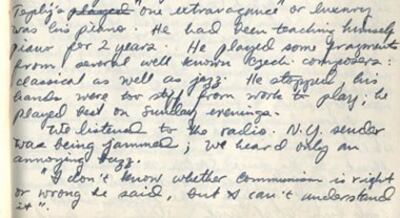 Teplý's played "one extravagance" or luxury
was his piano. He had been teaching himself
piano for 2 years. He played some fragments
from several well known Czech composers:
classical as well as jazz. He stopped, his
hands were too stiff from work to play; he
played best on Sunday evenings.
We listened to the radio. N.Y. sender
was being jammed; we heard only an
annoying buzz.
"I don't know whether Communism is right
or wrong he said, but I can't understand
it".